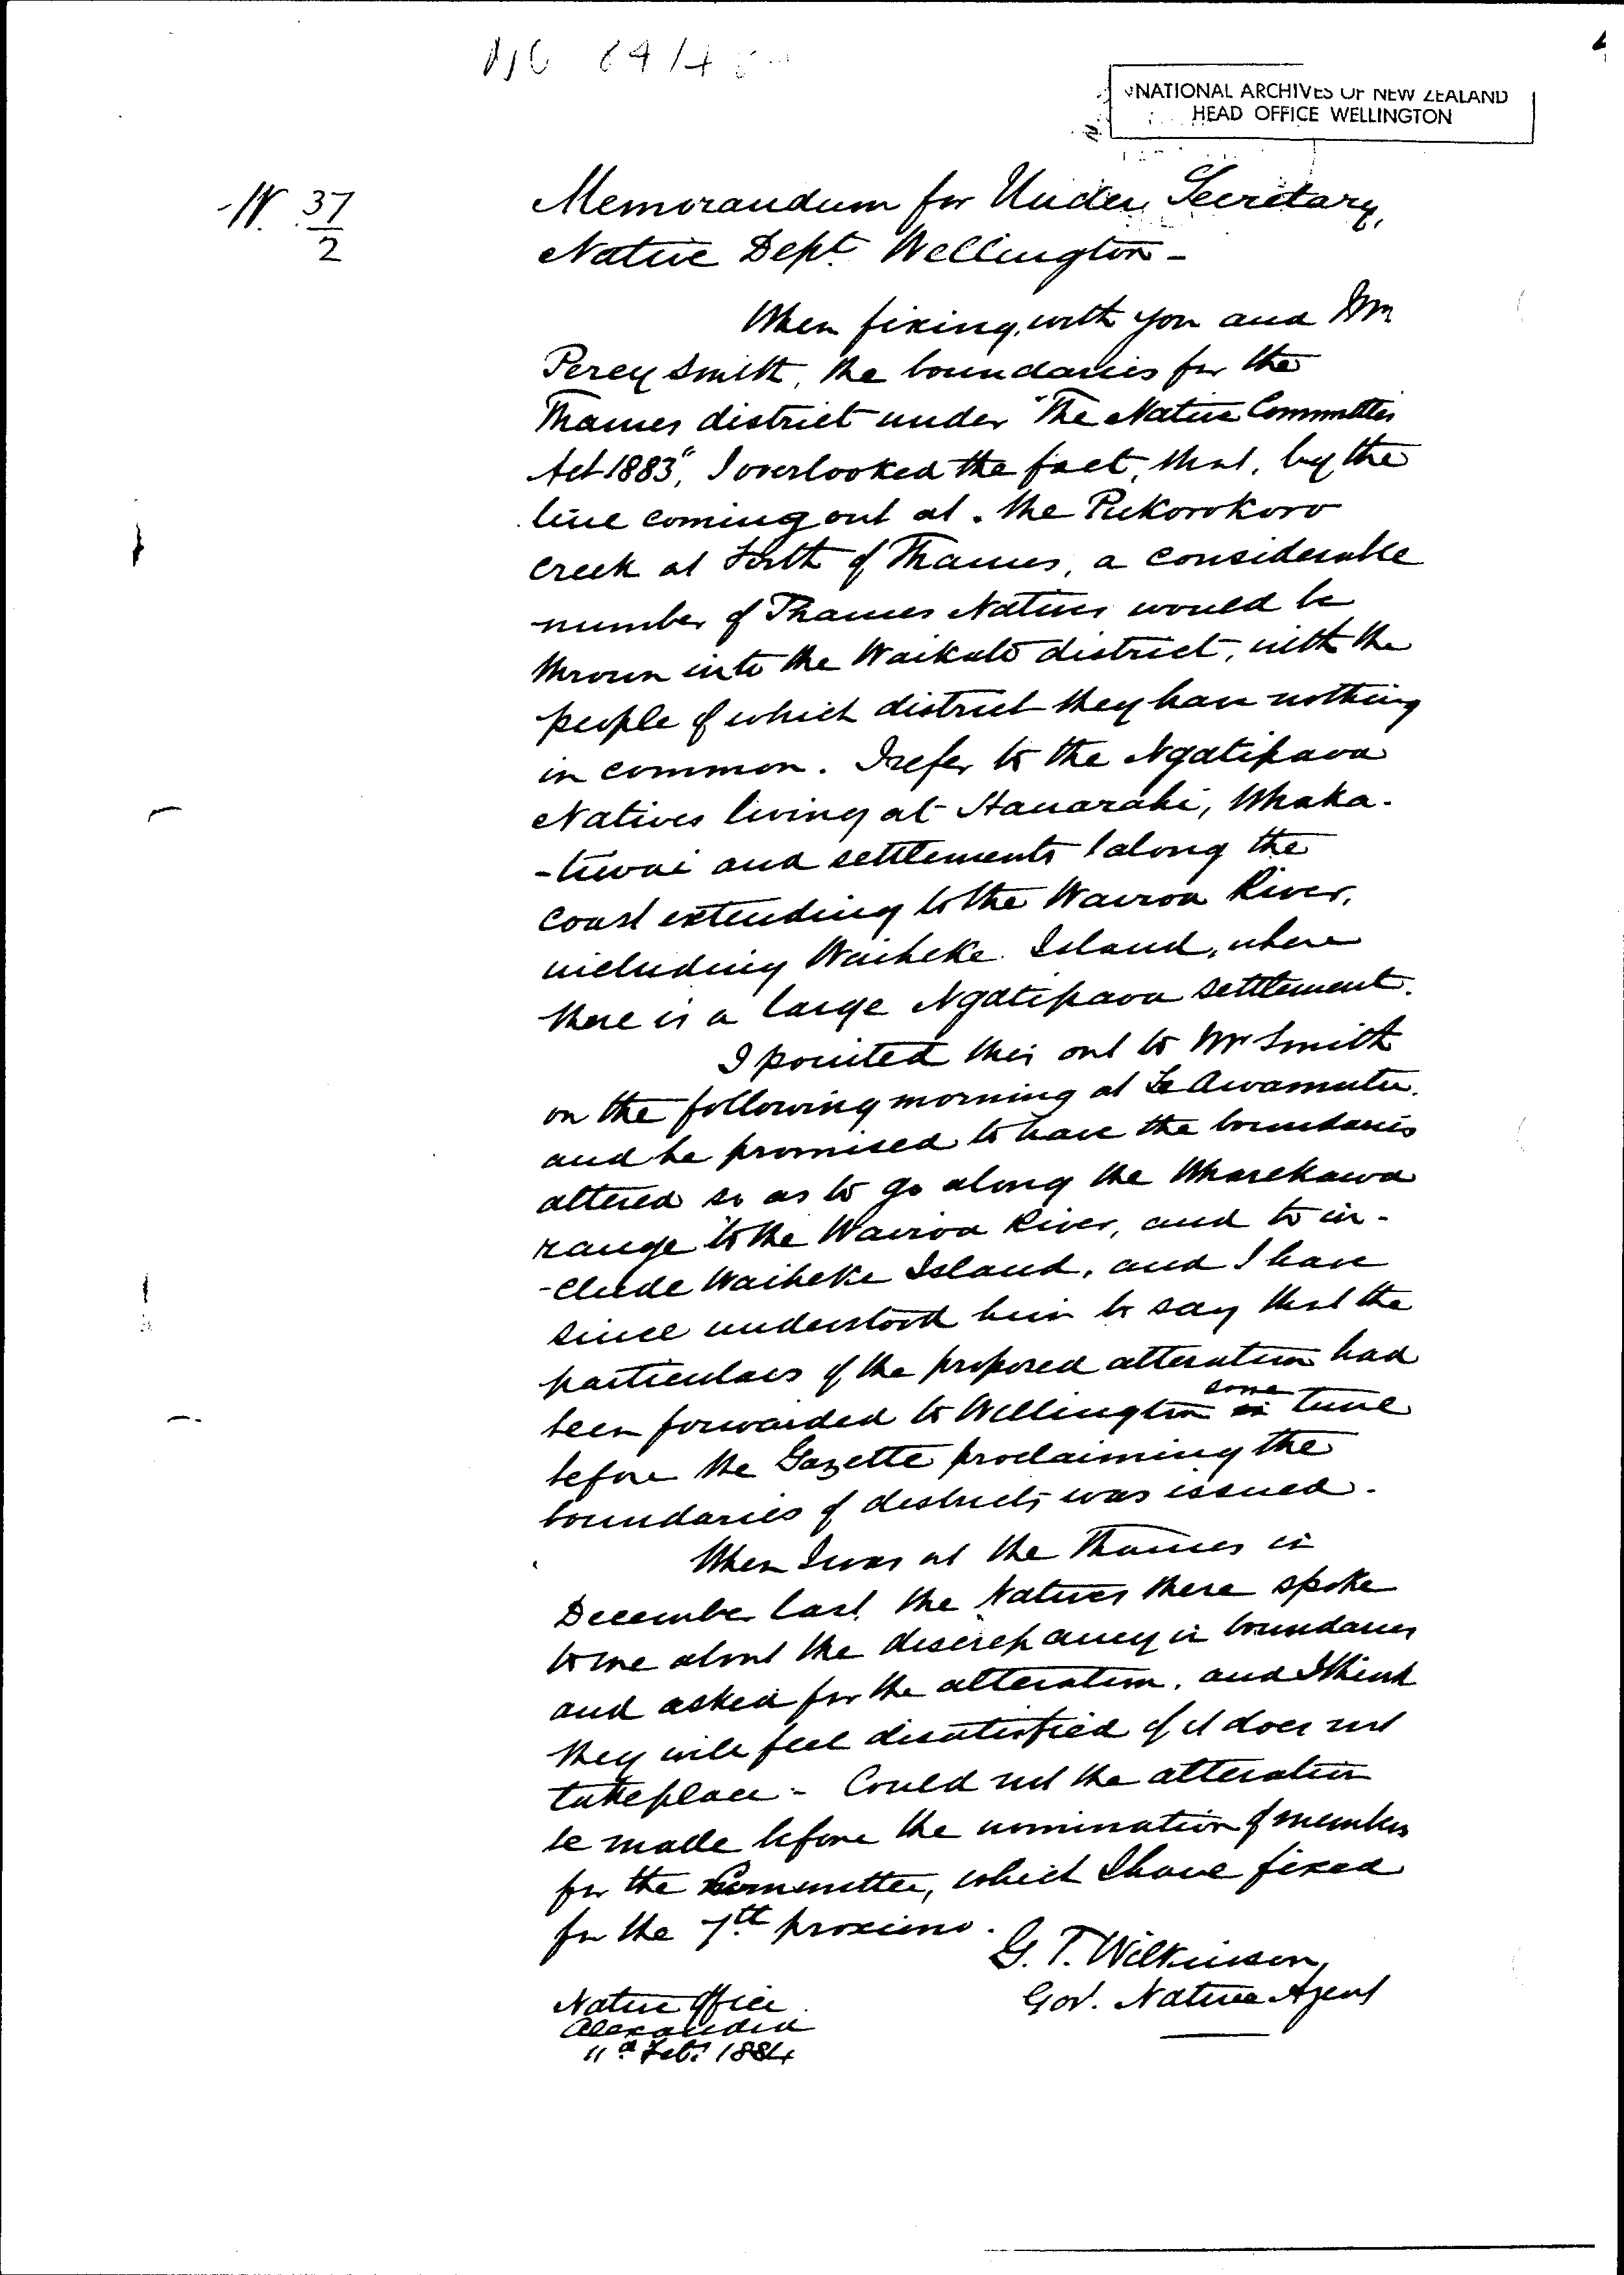 NATIONAL ARCHIVES OF NEW ZEALAND
HEAD OFFICE WELLINGTON
W. 37/2
Memorandum for Under Secretary,
Native Dept. Wellington -
When fixing, with you and Mr
Percy Smith, the boundaries for the
Thames district under "The Native Committees
Act 1883", I overlooked the fact, that, by the
line coming out at the Pukorokoro
Creek at Firth of Thames, a considerable
number of Thames Natives would be
thrown into the Waikato district, with the
people of which district they have nothing
in common. I refer to the Ngatipaoa
Natives living at Hauarahi, Whaka-
-tiwai and settlements along the
coast extending to the Wairoa River,
including Waiheke Island, where
there is a large Ngatipaoa settlement.
I pointed this out to Mr Smith
on the following morning at Te Awamutu.
and he promised to have the boundaries
altered so as to go along the Wharekawa
range to the Wairoa River, and to in-
-clude Waiheke Island, and I have
since understood him to say that the
particulars of the proposed alteration had
been forwarded to Wellington some time
before the Gazette proclaiming the
boundaries of districts was issued.
When I was at the Thames in
December last, the Natives there spoke
to me about the discrepancy in boundaries
and asked for the alteration, and I think
they will feel disatisfied if it does not
take place - Could not the alteration
be made before the nomination of members
for the Committee, which I have fixed
for the 7th proximo.
G. T. Wilkinson,
Gov. Native Agent
Native Office
Alexandra
11th Feb. 1884